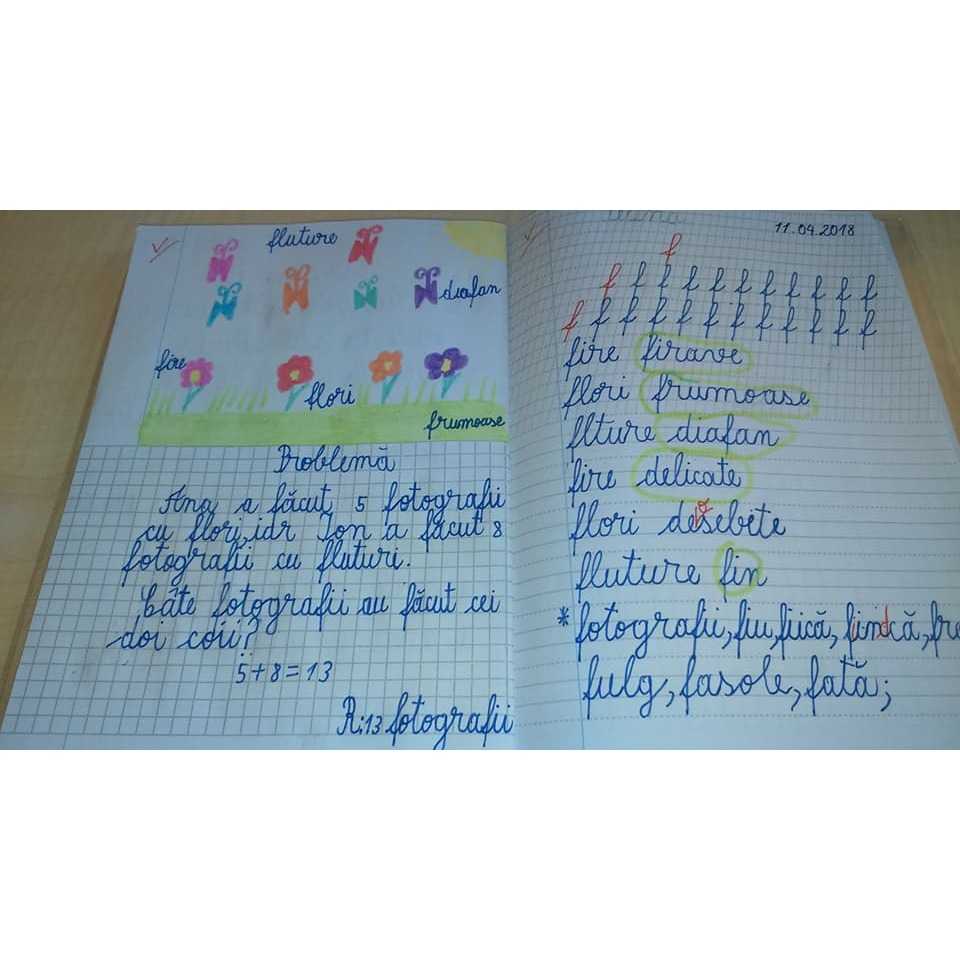 fluture
diafan
fire
flori
frumoase
Problemă
Ana a făcut 5 fotografii
cu flori, iar Ion a făcut 8
fotografii cu fluturi.
Câte fotografii au făcut cei
doi coii?
5+8=13
R:13 fotografii
11.04.2018
f
f f f f f f f f f f f
f f f f f f f f f f f f
fire firave
flori frumoase
flture diafan
fire delicate
flori desebite
fluture fin
* fotografii, fiu, fiică, fiindcă, fre
fulg, fasole, fată;